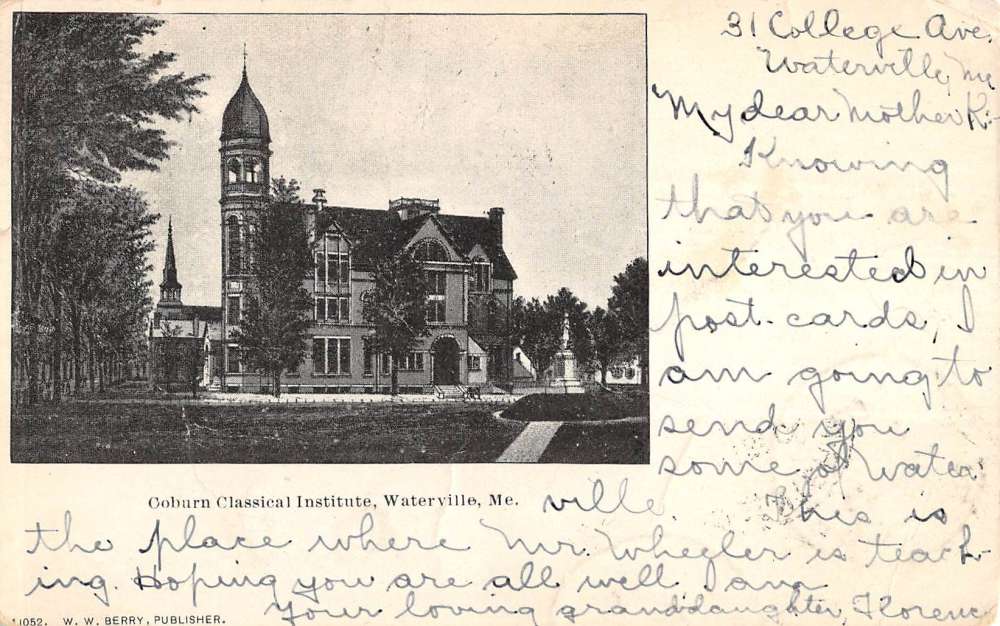 31 College Ave.
Waterville, Me
My dear Mother K-
Knowing
that you are
interested in
post-cards, I
am going to
send you
some of Water
ville.
This is
the place where Mr. Wheeler is teach-
ing. Hoping you are all well I am
Your loving granddaughter, Florenc
Coburn Classical Institute, Waterville, Me.
1052. W. W. BERRY, PUBLISHER.